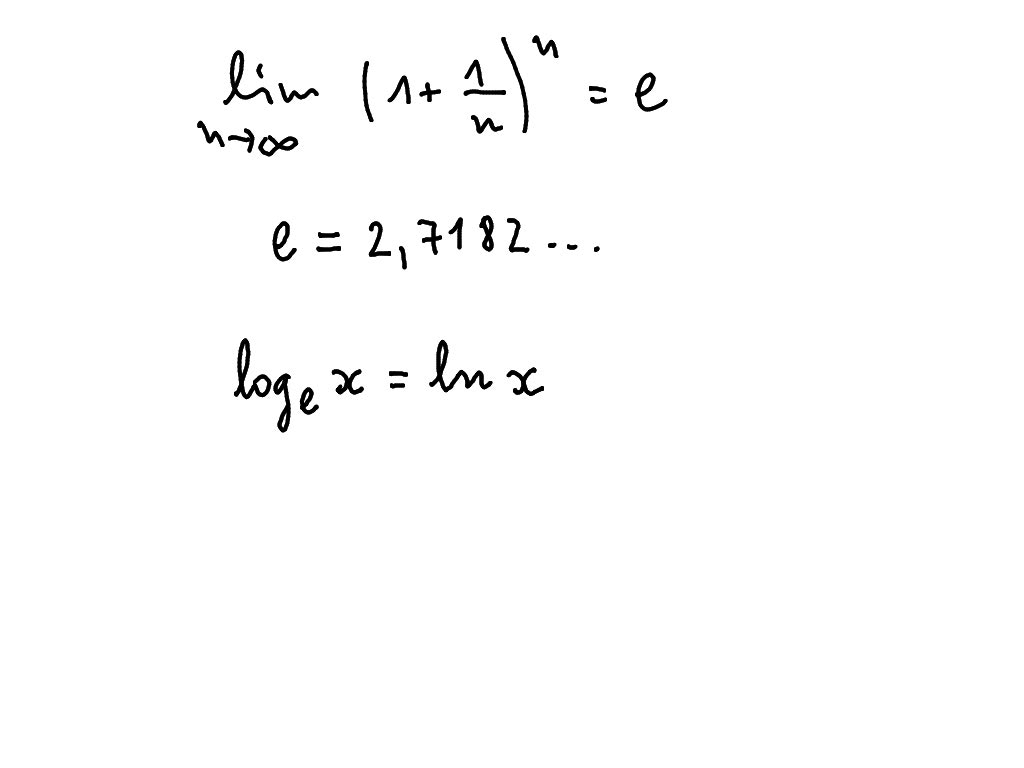 lim n→∞ (1 + 1/n)^n = e
e = 2,7182...
log_e x = ln x